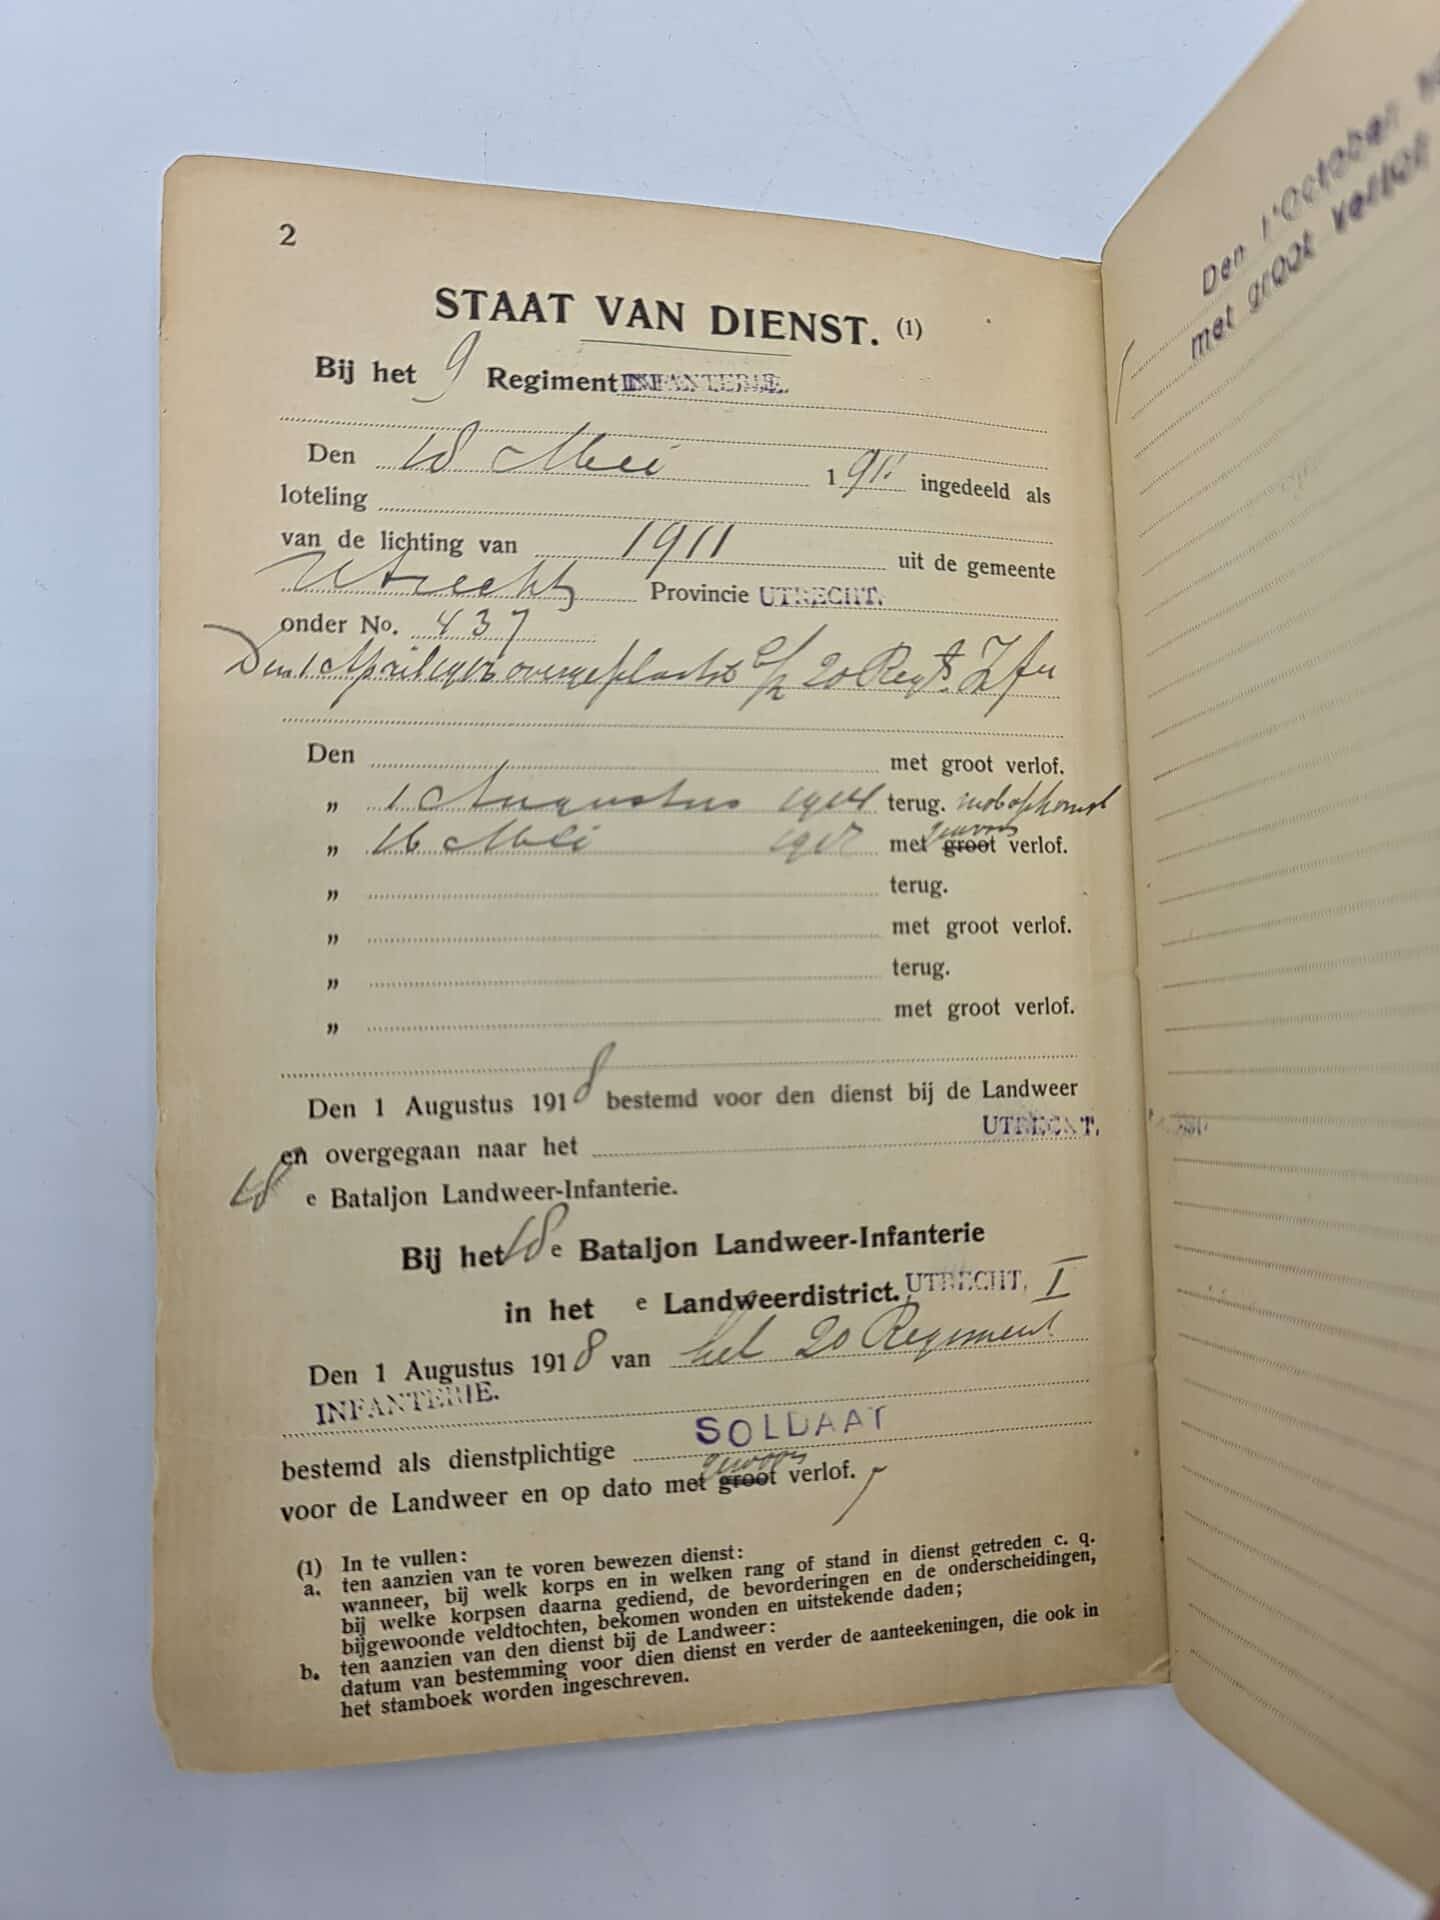 2
STAAT VAN DIENST. (1)
Bij het 9 Regiment INFANTERIE.
Den 18 Mei 1911 ingedeeld als
loteling
van de lichting van 1911 uit de gemeente
Utrecht Provincie UTRECHT.
onder No. 437
Den 1 April overgeplaatst b/h 20 Regt. Infie
Den met groot verlof.
„ 1 Augustus 1914 terug. mob opkomst
„ 16 Mei met groot gewoon verlof.
„ terug.
„ met groot verlof.
„ terug.
„ met groot verlof.
Den 1 Augustus 1918 bestemd voor den dienst bij de Landweer
en overgegaan naar het UTRECHT.
18 e Bataljon Landweer-Infanterie.
Bij het 18 e Bataljon Landweer-Infanterie
in het e Landweerdistrict. UTRECHT. I
Den 1 Augustus 1918 van het 20 Regiment
INFANTERIE.
bestemd als dienstplichtige SOLDAAT
voor de Landweer en op dato met groot gewoon verlof.
(1) In te vullen:
a. ten aanzien van te voren bewezen dienst:
wanneer, bij welk korps en in welken rang of stand in dienst getreden c. q.
bij welke korpsen daarna gediend, de bevorderingen en de onderscheidingen,
bijgewoonde veldtochten, bekomen wonden en uitstekende daden;
b. ten aanzien van den dienst bij de Landweer:
datum van bestemming voor dien dienst en verder de aanteekeningen, die ook in
het stamboek worden ingeschreven.
Den 1 October
met groot verlof